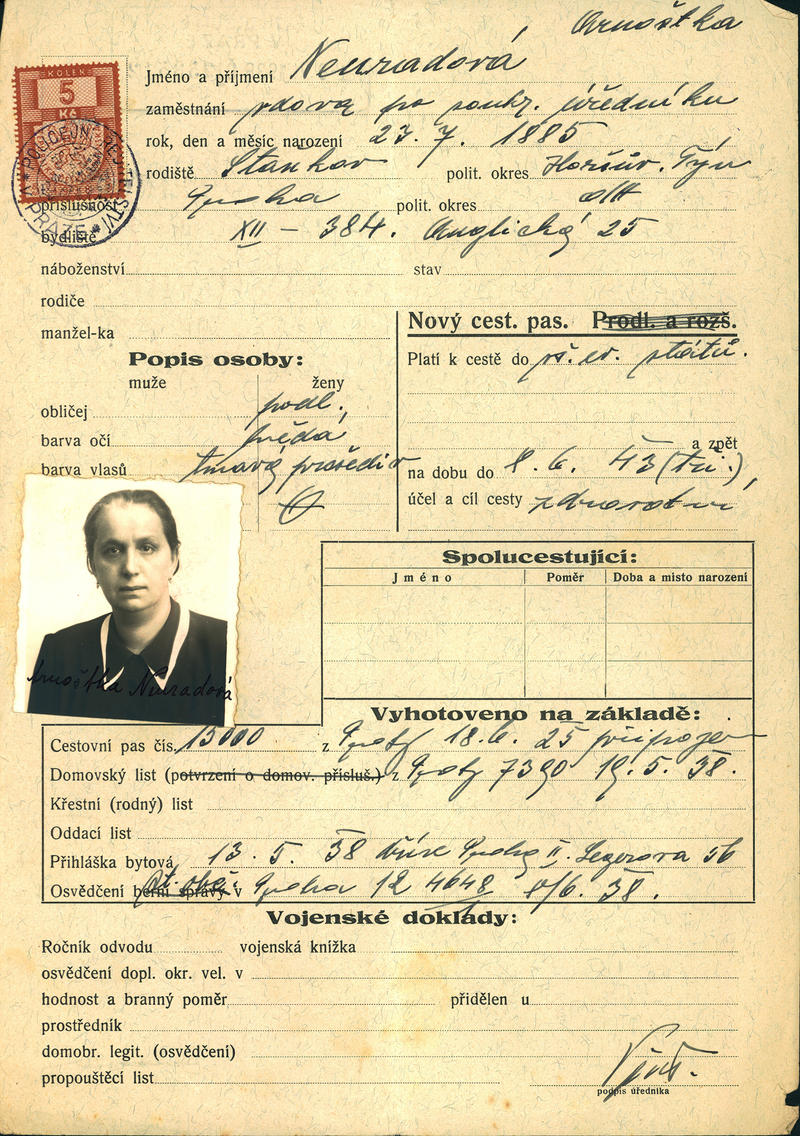 Arnoštka
Jméno a příjmení Neuradová
KOLEK
5
Kč
zaměstnání vdova po soukr. úředníku
rok, den a měsíc narození 23. 7. 1885
rodiště Staňkov polit. okres Horšův. Týn
příslušnost Praha polit. okres
PRAZE
bydliště XII – 384. Anglická 25
náboženství stav
rodiče
manžel-ka
Nový cest. pas. Prodl. a rozš.
Popis osoby:
muže ženy
Platí k cestě do vš. ev. států.
obličej podl.
barva očí hnědá
a zpět
barva vlasů tmavá prošedivě
na dobu do 8. 6. 43 (tři.),
účel a cíl cesty zdravotní
Arnoštka Neuradová
Spolucestující:
Jméno Poměr Doba a místo narození
Vyhotoveno na základě:
Cestovní pas čís. 15000 z Prahy 18. 6. 25 připojen
Domovský list (potvrzení o domov. přísluš.) z Prahy 7390 19. 5. 38.
Křestní (rodný) list
Oddací list
Přihláška bytová 13. 5. 38 Praha II. Legerova 56
Osvědčení berní správy v Praha 12 4648 8/6. 38.
Vojenské doklady:
Ročník odvodu vojenská knížka
osvědčení dopl. okr. vel. v
hodnost a branný poměr přidělen u
prostředník
domobr. legit. (osvědčení)
propouštěcí list
podpis úředníka